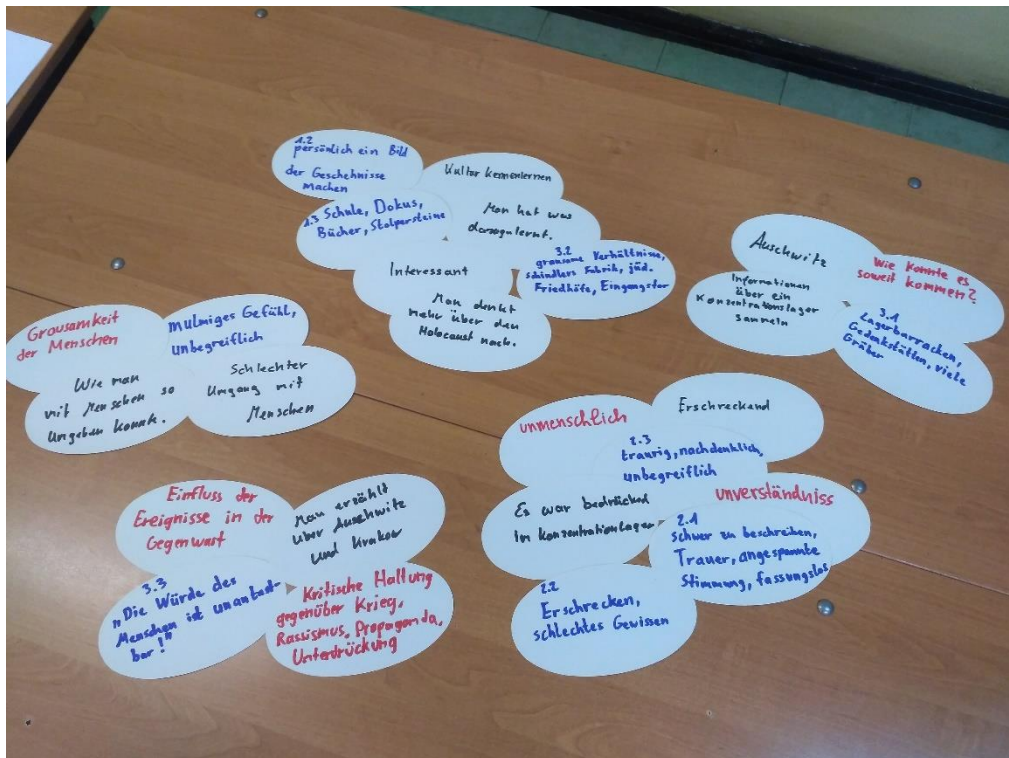 1.2
persönlich ein Bild
der Geschehnisse
machen
Kultur kennenlernen
1.3 Schule, Dokus,
Bücher, Stolpersteine
Man hat was
dazugelernt.
Interessant
3.2
grausame Verhältnisse,
schindlers Fabrik, jüd.
Friedhöfe, Eingangstor
Man denkt
mehr über den
Holocaust nach.
Auschwitz
Wie konnte es
soweit kommen?
Informationen
über ein
Konzentrationslager
sammeln
3.1
Lagerbarracken,
Gedenkstätten, viele
Gräber
Grausamkeit
der Menschen
mulmiges Gefühl,
unbegreiflich
Wie man
mit Menschen so
umgehen konnte.
Schlechter
Umgang mit
Menschen
unmenschlich
Erschreckend
2.3
traurig, nachdenklich,
unbegreiflich
Es war bedrückend
In Konzentrationlager
unverständniss
2.1
schwer zu beschreiben,
Trauer, angespannte
Stimmung, fassungslos
2.2
Erschrecken,
schlechtes Gewissen
Einfluss der
Ereignisse in der
Gegenwart
Man erzählt
über Auschwitz
und Krakow
3.3
"Die Würde des
Menschen ist unantast-
bar!"
Kritische Haltung
gegenüber Krieg,
Rassismus, Propaganda,
Unterdrückung